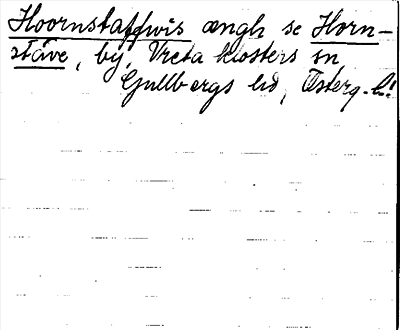 Hoornstaffwis ængh se Horn-
stäve, by, Vreta klosters sn
Gullbergs hd, Österg. l.!